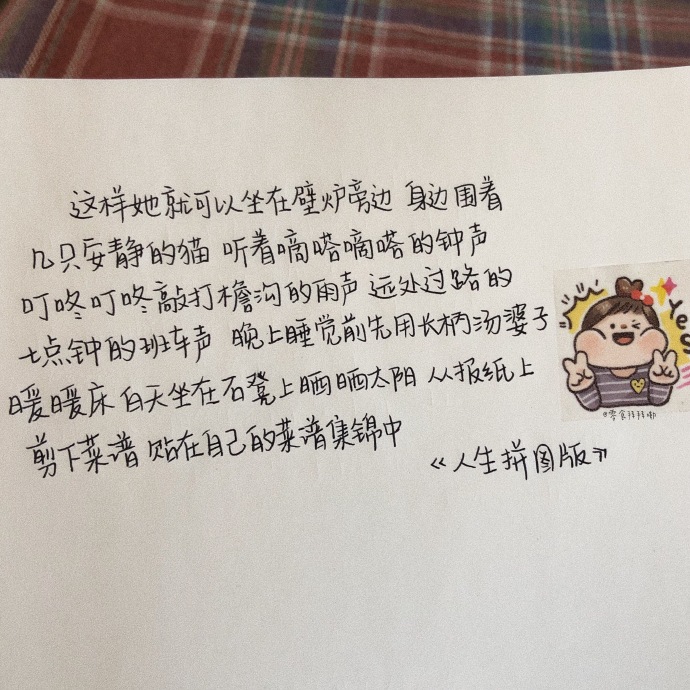 这样她就可以坐在壁炉旁边 身边围着
几只安静的猫 听着嘀嗒嘀嗒的钟声
叮咚叮咚敲打檐沟的雨声 远处过路的
七点钟的班车声 晚上睡觉前先用长柄汤婆子
暖暖床 白天坐在石凳上晒晒太阳 从报纸上
剪下菜谱 贴在自己的菜谱集锦中
《人生拼图版》